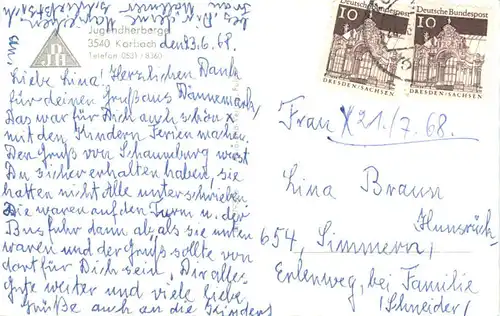 Jugendherberge
3540 Korbach
Telefon 0531 / 8360
den 23.6.68.
Liebe Lina! Herzlichen Dank
für deinen Gruß aus Dännemark,
Das war für Dich auch schön
mit den Kindern Ferien machen.
Den Gruß von Schaumburg wirst
Du sicher erhalten haben, sie
hatten nicht Alle unterschrieben.
Die waren auf den Turm u. der
Bus fuhr dann ab, als sie unten
waren und der Gruß sollte von
dort für Dich sein, Dir alles
Gute weiter und viele liebe
Grüße auch an die Kinder
Deutsche Bundespost
10
DRESDEN/SACHSEN
Deutsche Bundespost
10
DRESDEN/SACHSEN
Frau X 21./7. 68.
Lina Braun
Hunsrück
654, Simmern,
Erlenweg, bei Familie
(Schneider)